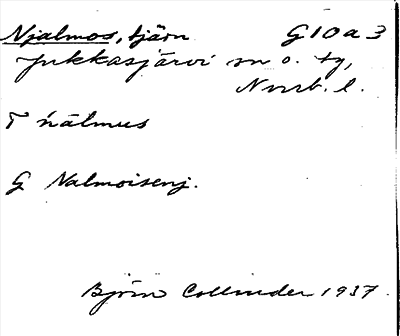 Njalmos, tjärn G10a3
Jukkasjärvi sn o. ty,
Nrrb. l.
T ńälmus
G Nalmoisenj.
Björn Collinder 1937.